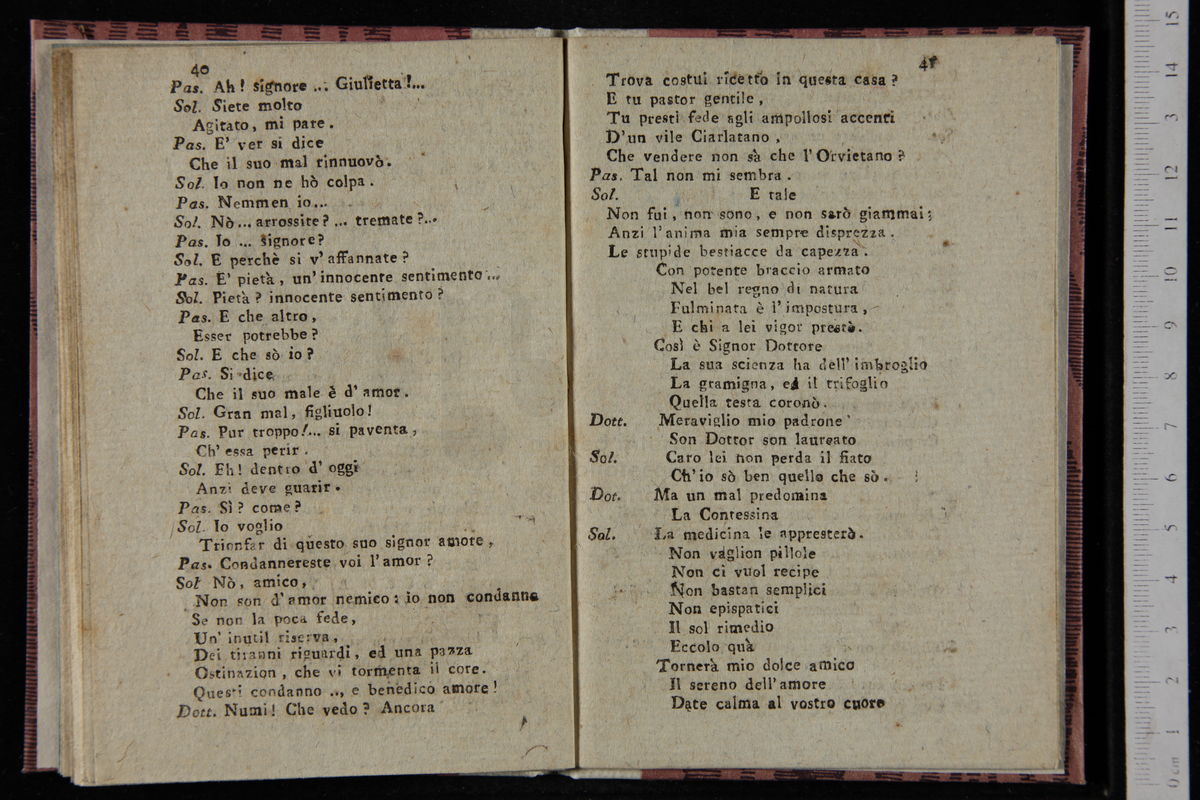 40
Pas. Ah! signore ... Giulietta!...
Sol. Siete molto
Agitato, mi pare.
Pas. E' ver si dice
Che il suo mal rinnuovò.
Sol. Io non ne hò colpa.
Pas. Nemmen io...
Sol. Nò... arrossite?... tremate?...
Pas. Io ... signore?
Sol. E perchè si v'affannate?
Pas. E' pietà, un'innocente sentimento...
Sol. Pietà? innocente sentimento?
Pas. E che altro,
Esser potrebbe?
Sol. E che sò io?
Pas. Si dice
Che il suo male è d'amor.
Sol. Gran mal, figliuolo!
Pas. Pur troppo!... si paventa,
Ch'essa perir.
Sol. Eh! dentro d'oggi
Anzi deve guarir.
Pas. Sì? come?
Sol. Io voglio
Trionfar di questo suo signor amore,
Pas. Condannereste voi l'amor?
Sol Nò, amico,
Non son d'amor nemico: io non condanno
Se non la poca fede,
Un' inutil riserva,
Dei tiranni riguardi, ed una pazza
Ostinazion, che vi tormenta il core.
Questi condanno .., e benedico amore!
Dott. Numi! Che vedo? Ancora
41
Trova costui ricetto in questa casa?
E tu pastor gentile,
Tu presti fede agli ampollosi accenti
D'un vile Ciarlatano,
Che vendere non sà che l'Orvietano?
Pas. Tal non mi sembra.
Sol. E tale
Non fui, non sono, e non sarò giammai;
Anzi l'anima mia sempre disprezza.
Le stupide bestiacce da capezza.
Con potente braccio armato
Nel bel regno di natura
Fulminata è l'impostura,
E chi a lei vigor prestò.
Così è Signor Dottore
La sua scienza ha dell'imbroglio
La gramigna, ed il trifoglio
Quella testa coronò.
Dott. Meraviglio mio padrone
Son Dottor son laureato
Sol. Caro lei non perda il fiato
Ch'io sò ben quello che sò.
Dot. Ma un mal predomina
La Contessina
Sol. La medicina le appresterò.
Non vaglion pillole
Non ci vuol recipe
Non bastan semplici
Non epispatici
Il sol rimedio
Eccolo quà
Tornerà mio dolce amico
Il sereno dell'amore
Date calma al vostro cuore
0 cm 1 2 3 4 5 6 7 8 9 10 11 12 13 14 15